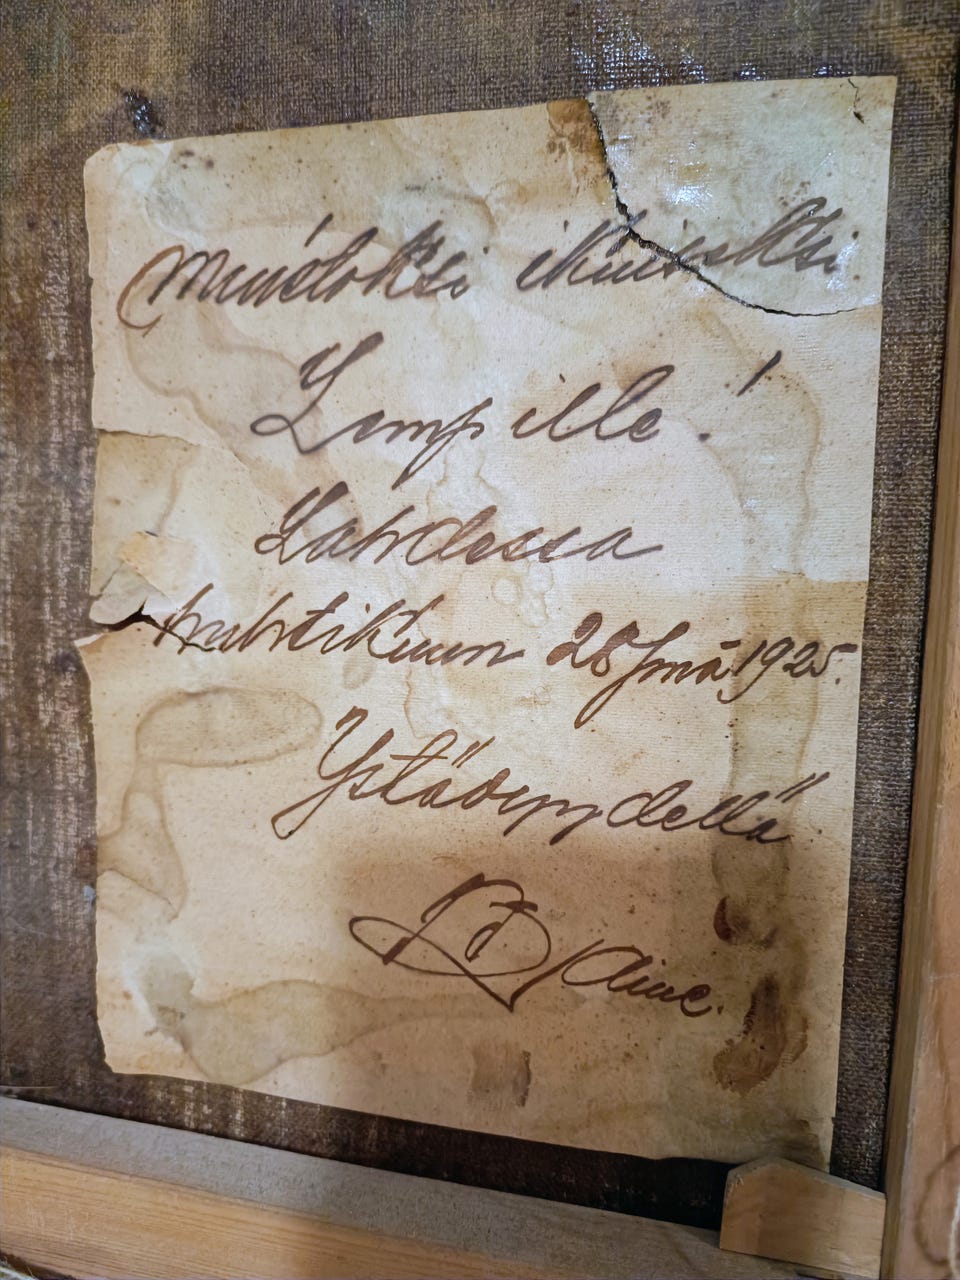 Muistoksi ikuiseksi
Lempille!
Lahdessa
huhtikuun 28 pnä 1925.
Ystävyydellä
Aine.